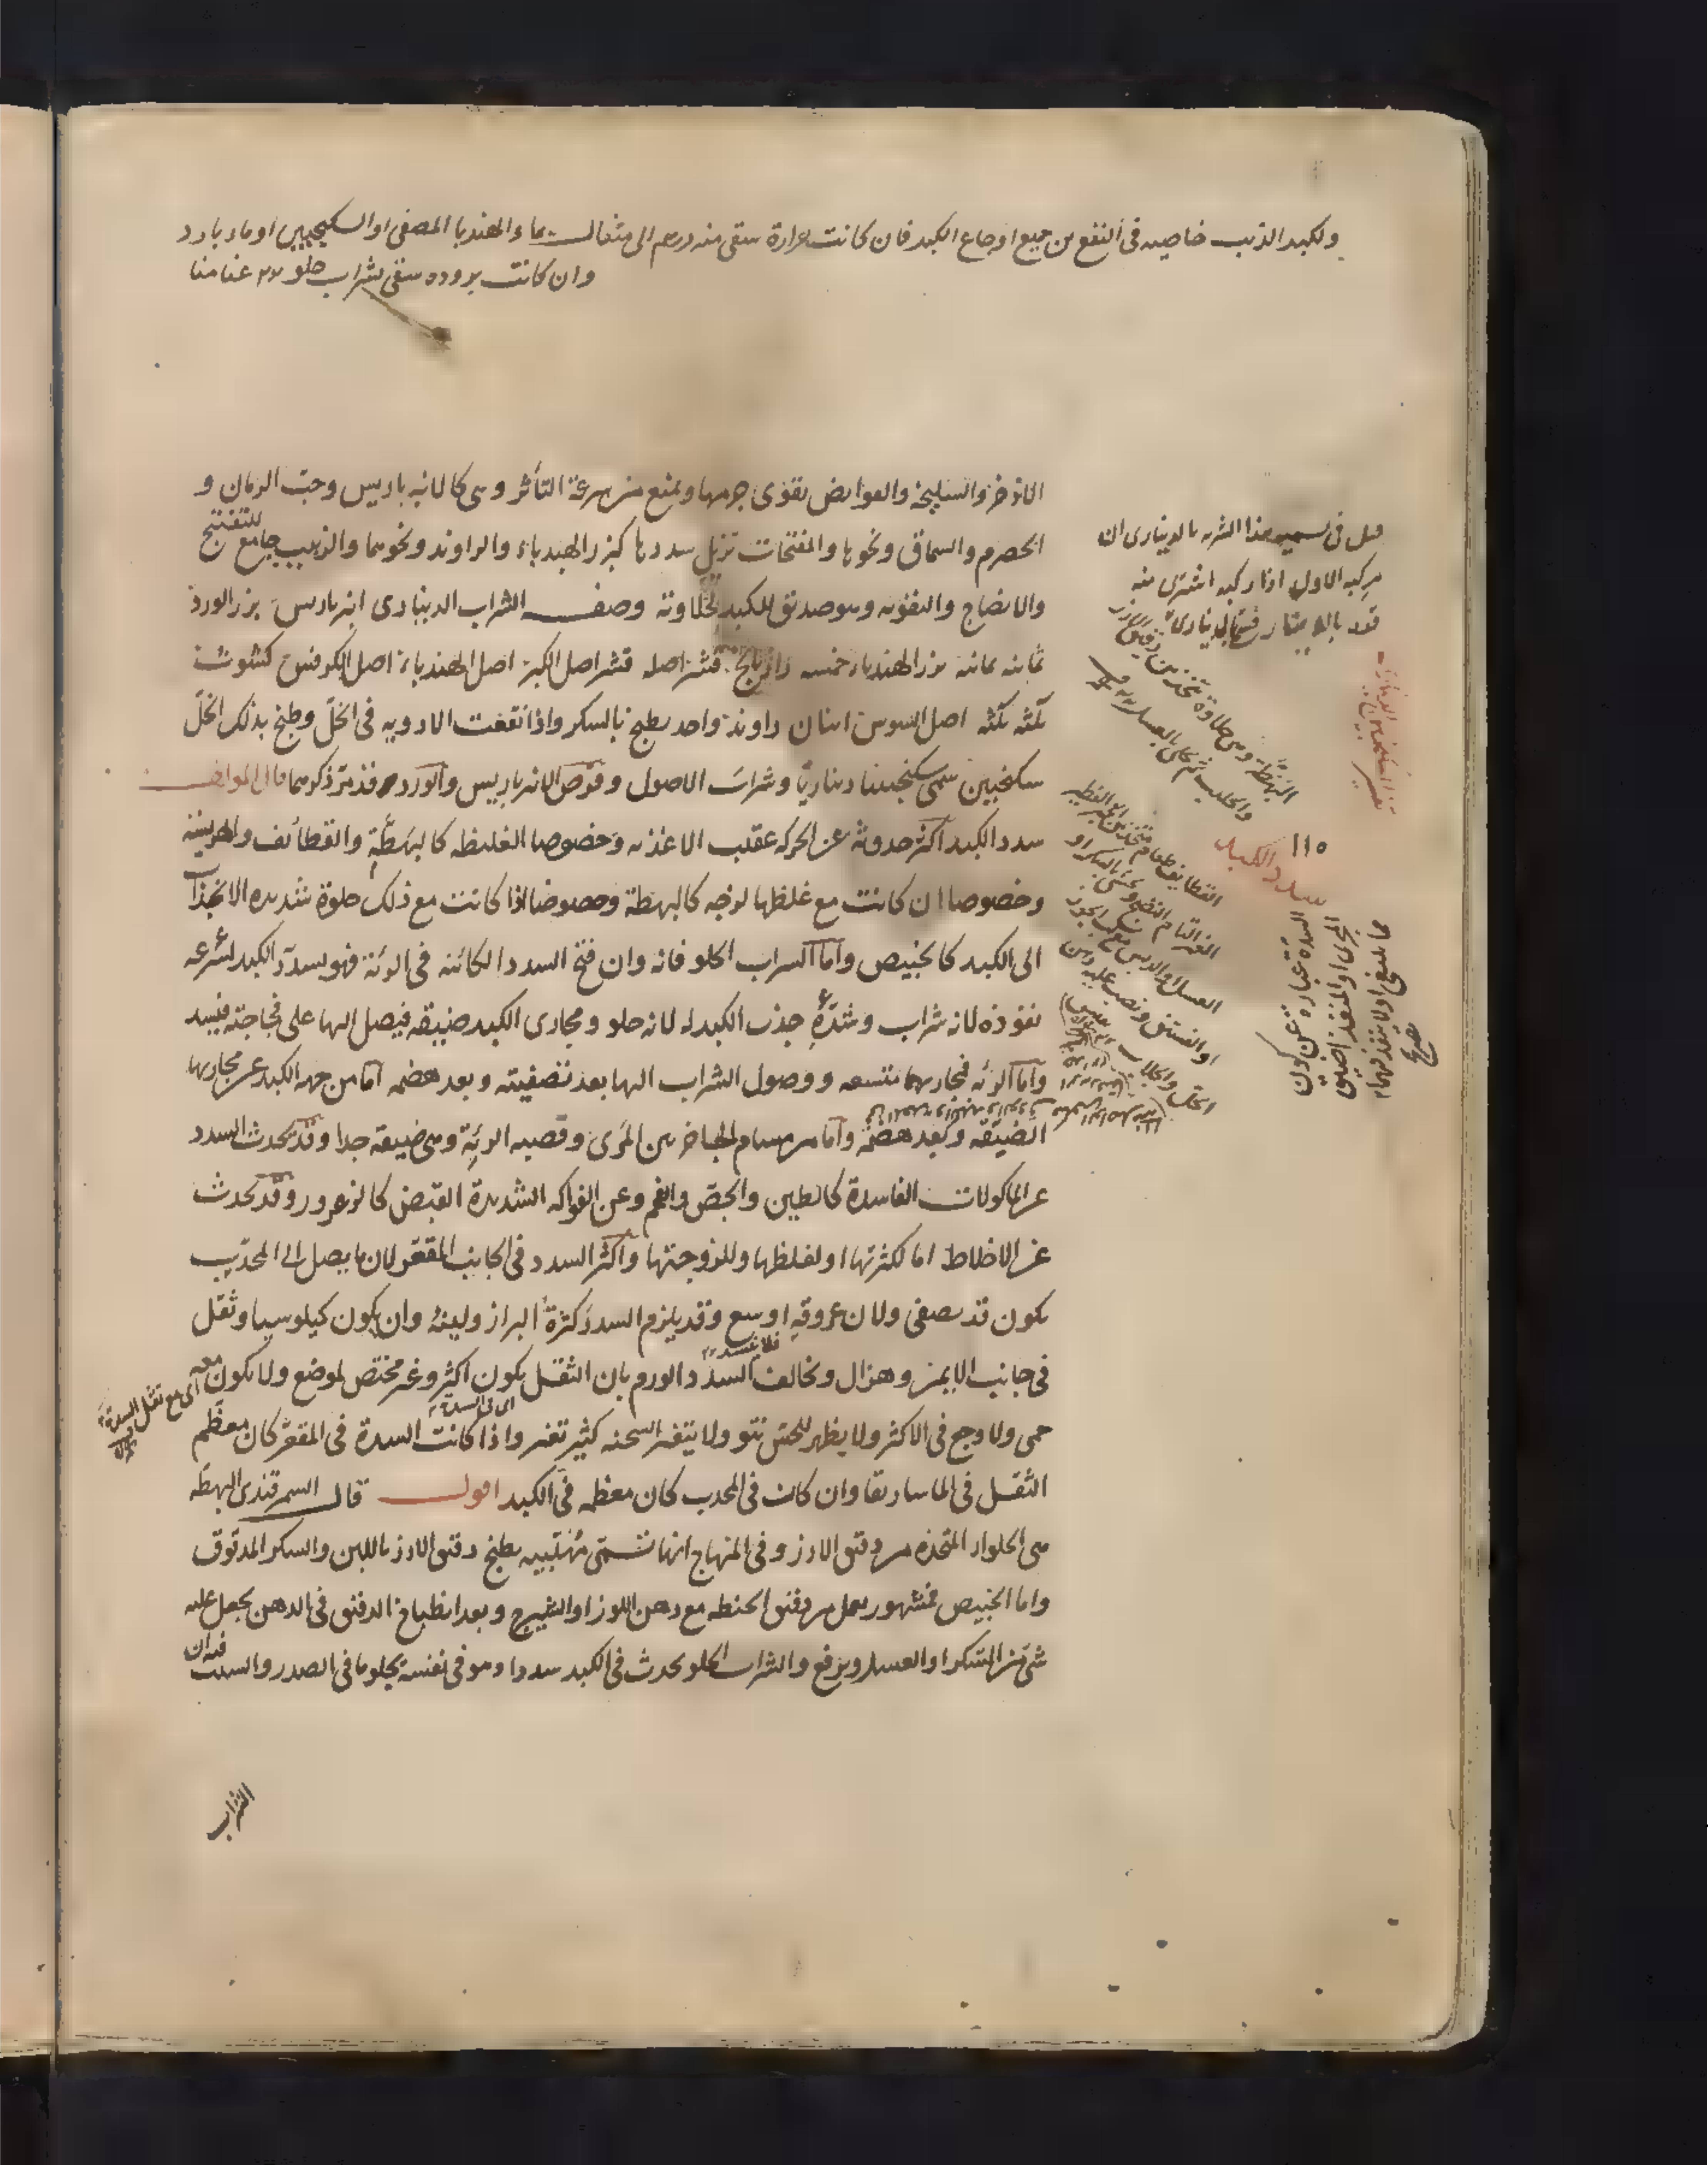 ولكبد الذئب خاصيه فى النفع من جميع اوجاع الكبد فان كانت بحرارة سقى منه درهم الى مثقال بماء الهندبا المصفى او السكنجبين او ماء بارد
وان كانت بروده سقى بشراب حلو
الاذخر والسليخه والقوابض تقوى جرمها وتمنع من سرعة التأثر وهى كالانبرباريس وحب الرمان و
الحصرم والسماق ونحوها والمفتحات تزيل سددها كبزر الهندباء والراوند ونحوهما والزبيب جامع للتفتيح
والانضاج والتقويه وهو صديق للكبد لحلاوته وصفـ الشراب الدينارى انبرباريس بزر الورد
ثمانه ثمانه بزر الهندباء خمسه رازيانج قشر اصله قشر اصل الكبر اصل الهندباء اصل الكرفس كشوث
ثلثه ثلثه اصل السوس اثنان راوند واحد يطبخ بالسكر واذا نقعت الادويه فى الخل وطبخ بذلك الخل
سكنجبين سمى سكنجبينا ديناريا وشراب الاصول وقرص الانبرباريس والورد قد مر ذكرهما قال المولف
سدد الكبد اكثر حدوثه عن الحركه عقيب الاغذيه وخصوصا الغليظه كالبهطة والقطائف والهريسه
وخصوصا ان كانت مع غلظها لزجه كالبهطة وخصوصا اذا كانت مع ذلك حلوة شديده الانجذاب
الى الكبد كالخبيص واما الشراب الحلو فانه وان فتح السدد الكائنه فى الرئة فهو يسدد الكبد لسرعه
نفوذه لانه شراب وشدة جذب الكبد له لانه حلو ومجارى الكبد ضيقه فيصل اليها على فجاجته فيسد
واما الرئه فمجاريها متسعه ووصول الشراب اليها بعد تصفيته وبعد هضمه اما من جهه الكبد عن مجاريها
الضيقه وبعد هضمه واما من مسام الحاجز بين المرى وقصبه الرئة وهى ضيقة جدا وقد تحدث السدد
عن الماكولات الفاسدة كالطين والجص والفحم وعن الفواكه الشديدة القبض كالزعرور وقد تحدث
عن الاخلاط اما لكثرتها او لغلظها وللزوجتها واكثر السدد فى الجانب المقعر لان ما يصل الى المحدب
يكون قد يصفى ولان عروقه اوسع وقد يلزم السدد كثرة البراز ولينه وان يكون كيلوسيا وثقل
فى جانب الايمن وهزال وتخالف السدد الورم بان الثقل يكون اكثر وغير مختص لموضع ولا يكون معه
اى مع ثقل السدة
حمى ولا وجع فى الاكثر ولا يظهر للحس نتو ولا يتغير السحنه كثير تغير واذا كانت السدة فى المقعر كان معظم
الثقل فى الماساريقا وان كانت فى المحدب كان معظمه فى الكبد اقول قال السمرقندى البهطة
هى الحلواء المتخذه من دقيق الارز وفى المنهاج انها تسمى مهلبيه يطبخ دقيق الارز باللبن والسكر المدقوق
واما الخبيص فمشهور يعمل من دقيق الحنطه مع دهن اللوز او الشيرج وبعد انطباخ الدقيق فى الدهن يجعل عليه
شئ من السكر او العسل ويرفع والشراب الحلو يحدث فى الكبد سددا وهو فى نفسه يجلو ما فى الصدر والسبب فيه ان
الشراب
قيل فى تسميه هذا الشربه بالدينارى ان
مركبه الاول اذا ركبه اشترى منه
قدر بالدينار فسمى بالدينارى
١١٥
سدد الكبد
السدة عبارة عن كون
المجرى او المنفذ اضيق
مما ينبغى او لا ينفذ فيهما